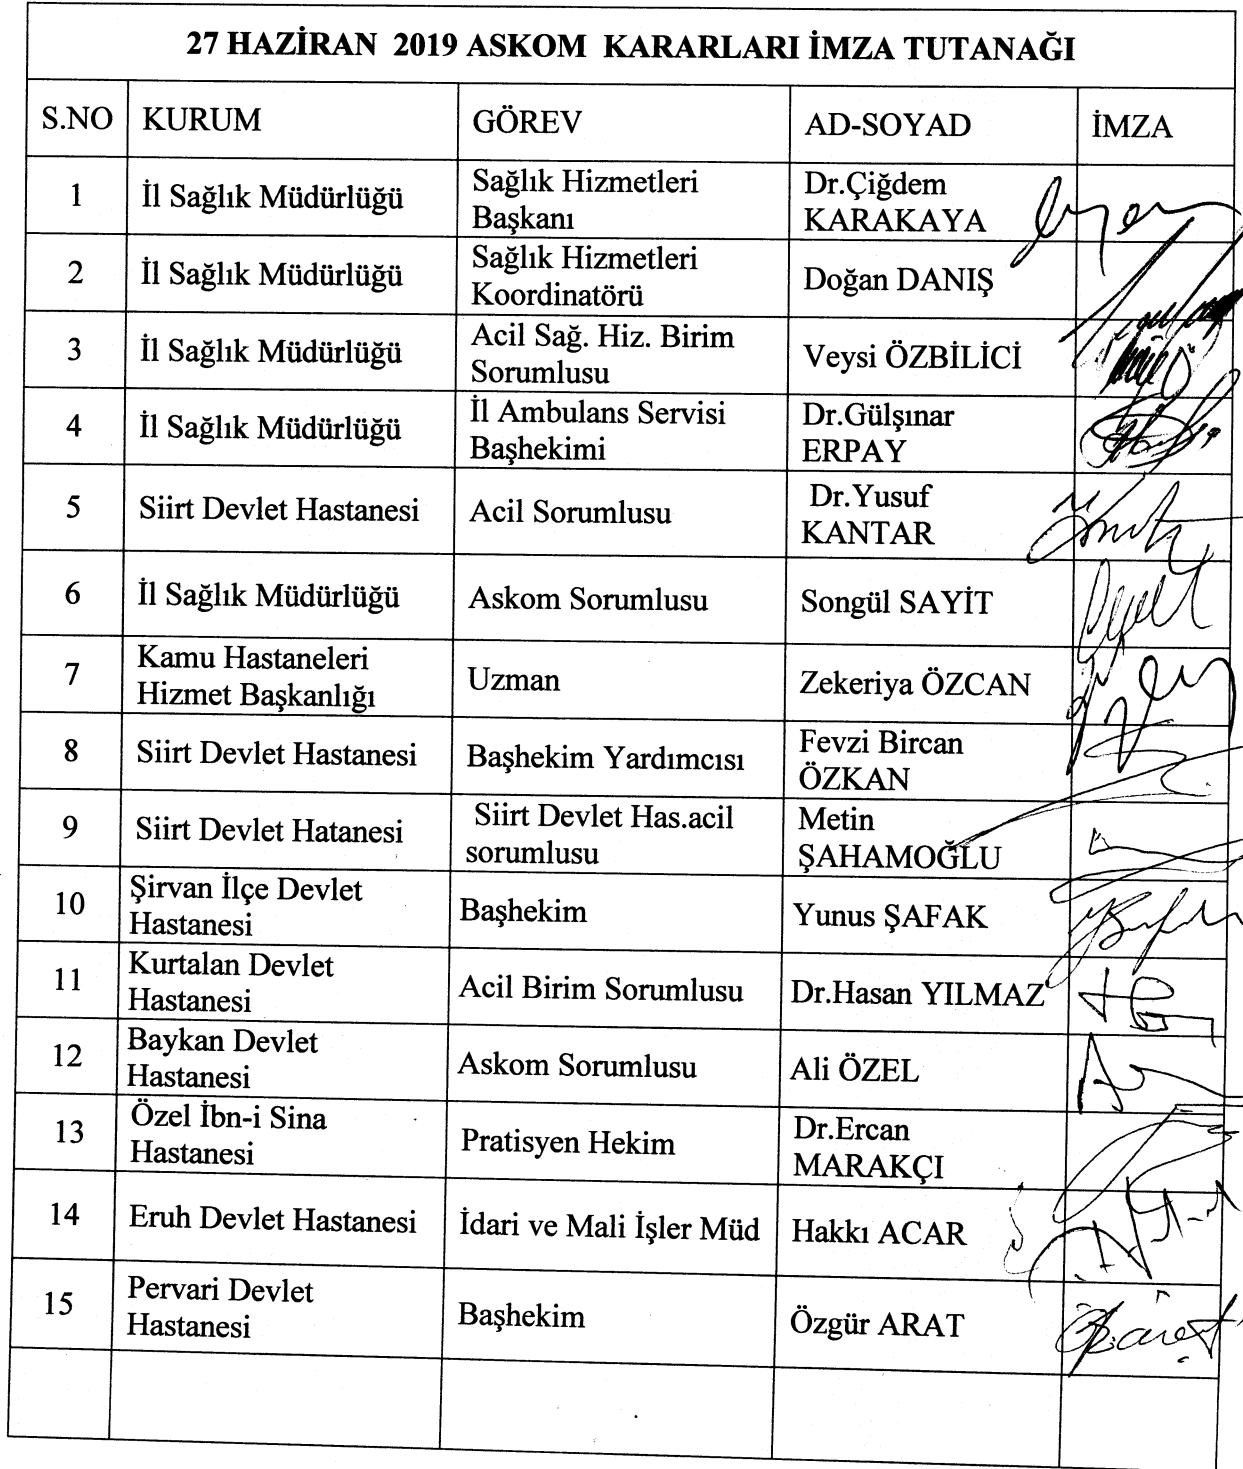 27 HAZİRAN 2019 ASKOM KARARLARI İMZA TUTANAĞI
S.NO KURUM GÖREV AD-SOYAD İMZA
1 İl Sağlık Müdürlüğü Sağlık Hizmetleri Başkanı Dr.Çiğdem KARAKAYA
2 İl Sağlık Müdürlüğü Sağlık Hizmetleri Koordinatörü Doğan DANIŞ
3 İl Sağlık Müdürlüğü Acil Sağ. Hiz. Birim Sorumlusu Veysi ÖZBİLİCİ
4 İl Sağlık Müdürlüğü İl Ambulans Servisi Başhekimi Dr.Gülşınar ERPAY
5 Siirt Devlet Hastanesi Acil Sorumlusu Dr.Yusuf KANTAR
6 İl Sağlık Müdürlüğü Askom Sorumlusu Songül SAYİT
7 Kamu Hastaneleri Hizmet Başkanlığı Uzman Zekeriya ÖZCAN
8 Siirt Devlet Hastanesi Başhekim Yardımcısı Fevzi Bircan ÖZKAN
9 Siirt Devlet Hatanesi Siirt Devlet Has.acil sorumlusu Metin ŞAHAMOĞLU
10 Şirvan İlçe Devlet Hastanesi Başhekim Yunus ŞAFAK
11 Kurtalan Devlet Hastanesi Acil Birim Sorumlusu Dr.Hasan YILMAZ
12 Baykan Devlet Hastanesi Askom Sorumlusu Ali ÖZEL
13 Özel İbn-i Sina Hastanesi Pratisyen Hekim Dr.Ercan MARAKÇI
14 Eruh Devlet Hastanesi İdari ve Mali İşler Müd Hakkı ACAR
15 Pervari Devlet Hastanesi Başhekim Özgür ARAT